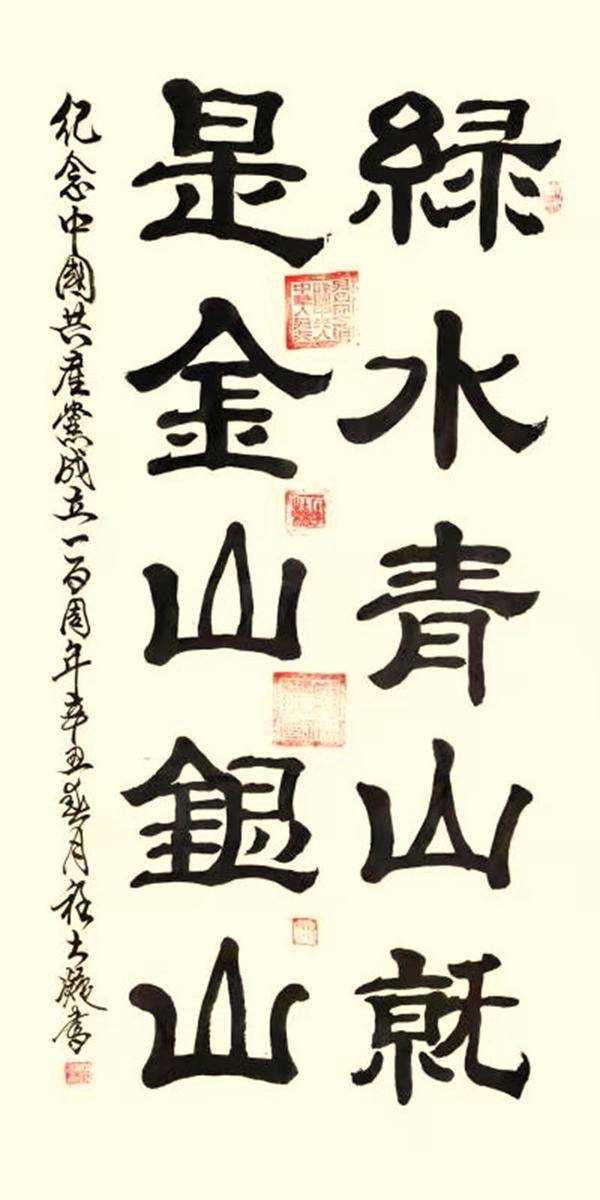 綠水青山就
是金山銀山
紀念中國共產黨成立一百周年辛丑春月書